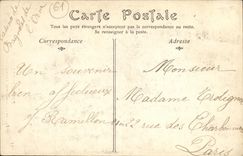 61
Carte Postale
Tous les pays étrangers n'acceptent pas la correspondance au recto.
Se renseigner à la poste.
Correspondance
Adresse
Un souvenir
bien affectueux
J. Ramillon
Monsieur
Madame
22 rue des
Paris